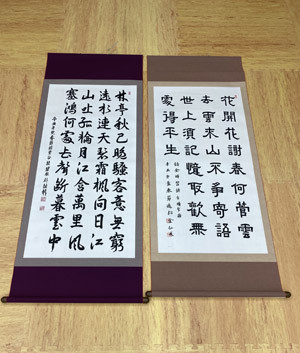 花開花謝春何管雲
去雲來山不爭寄語
世上須記憶取歡無
處得平生
林亭秋已晚騷客意無窮
遠水連天碧霜楓向日紅
山吐孤輪月江含萬里風
塞鴻何處去聲斷暮雲中